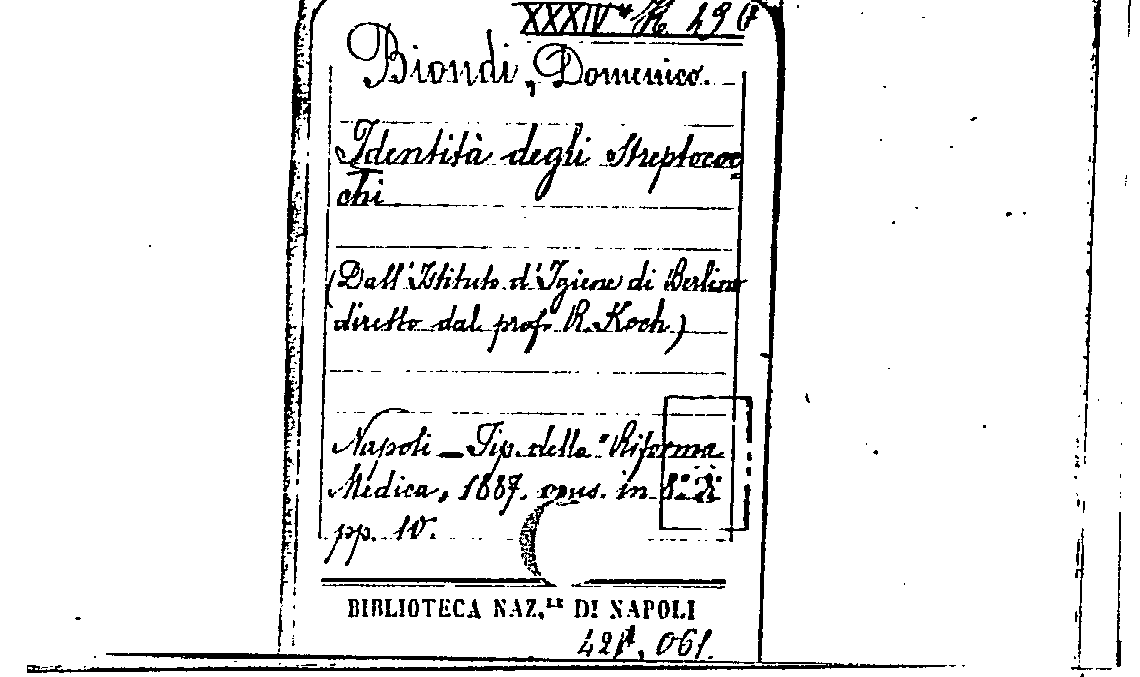 XXXIV
Biondi, Domenico.
Identità degli Streptococ=
chi
(Dall'Istituto d'Igiene di Berlino
diretto dal prof. R. Koch)
Napoli — Tip. della "Riforma
Medica, 1887. opus. in 8.° di
pp. 10.
BIBLIOTECA NAZ.LE DI NAPOLI
061.